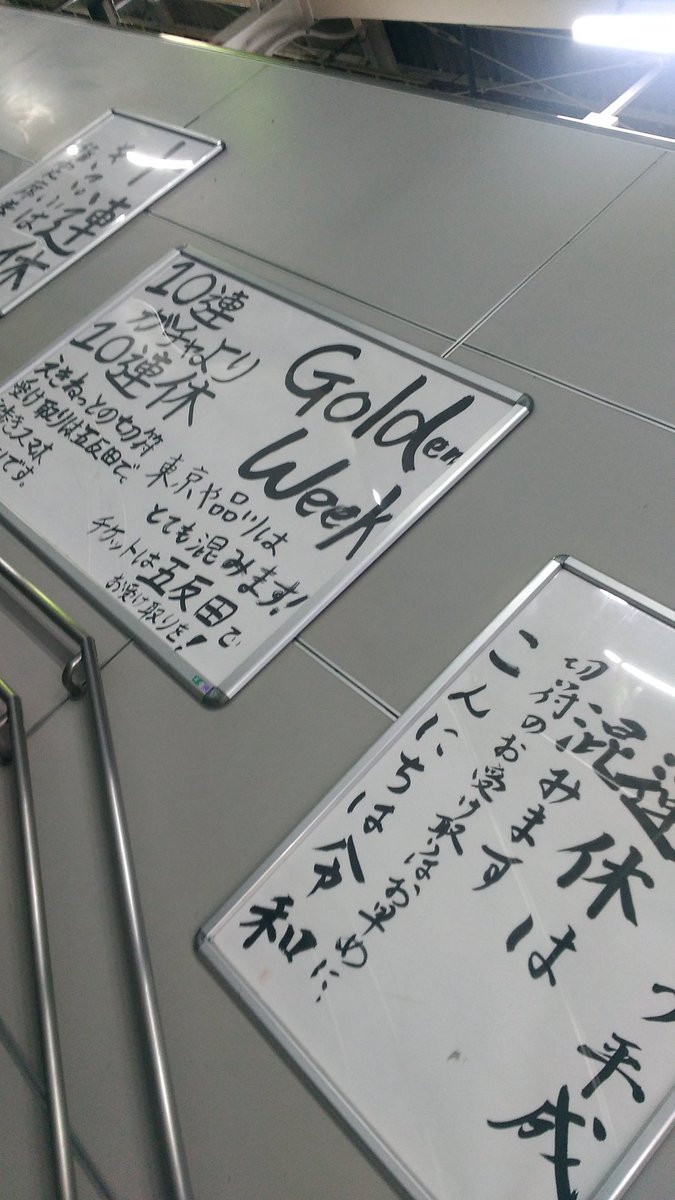 連休
Golden
Week
10連
ガチャより
10連休
えきねっとの切符
受け取りは五反田で、
歩きスマホ
です。
東京や品川は
とても混みます!
チケットは五反田で
お受け取りを!
平成
連休は
混みます
切符のお受け取りは、お早めに、
こんにちは令和